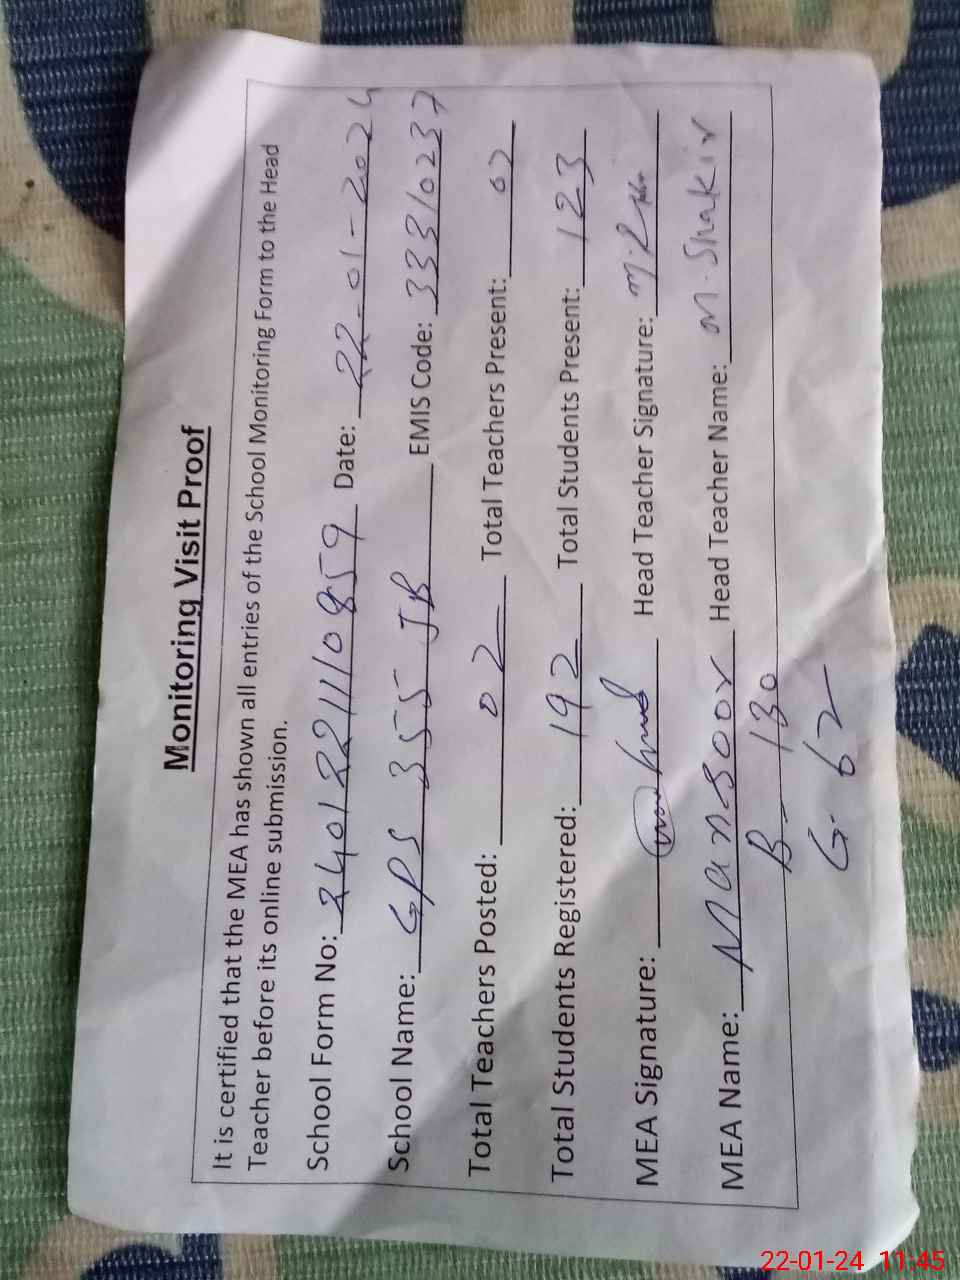 Monitoring Visit Proof
It is certified that the MEA has shown all entries of the School Monitoring Form to the Head
Teacher before its online submission.
School Form No: 2401221110859 Date: 22-01-2024
School Name: GPS 355 JB EMIS Code: 33310237
Total Teachers Posted: 02 Total Teachers Present: 02
Total Students Registered: 192 Total Students Present: 123
MEA Signature: Head Teacher Signature:
MEA Name: Mansoor Head Teacher Name: M. Shakir
B- 130
G- 62
22-01-24 11:45